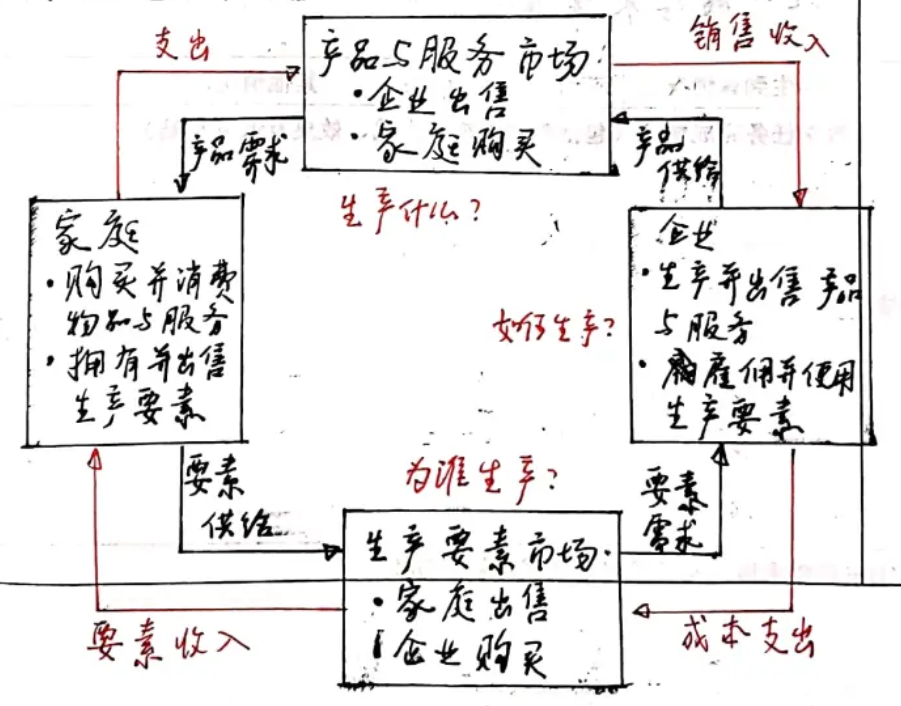 支出
产品与服务市场
·企业出售
·家庭购买
销售收入
产品需求
产品
供给
生产什么?
家庭
·购买并消费
物品与服务
·拥有并出售
生产要素
如何生产?
企业
·生产并出售产品
与服务
·雇佣并使用
生产要素
要素
供给
为谁生产?
要素
需求
生产要素市场
·家庭出售
企业购买
要素收入
成本支出